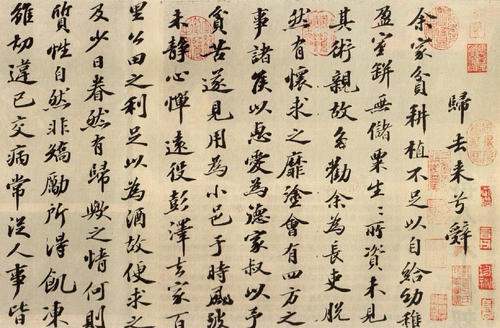 歸去來兮辭
余家貧耕植不足以自給幼稚
盈室缾無儲粟生〻所資未見
其術親故多勸余為長吏脫
然有懷求之靡塗會有四方之
事諸侯以惠愛為德家叔以予
貧苦遂見用為小邑于時風波
未靜心憚遠役彭澤去家百
里公田之利足以為酒故便求之
及少日眷然有歸歟之情何則
質性自然非矯勵所得飢凍
雖切違已交病常從人事皆